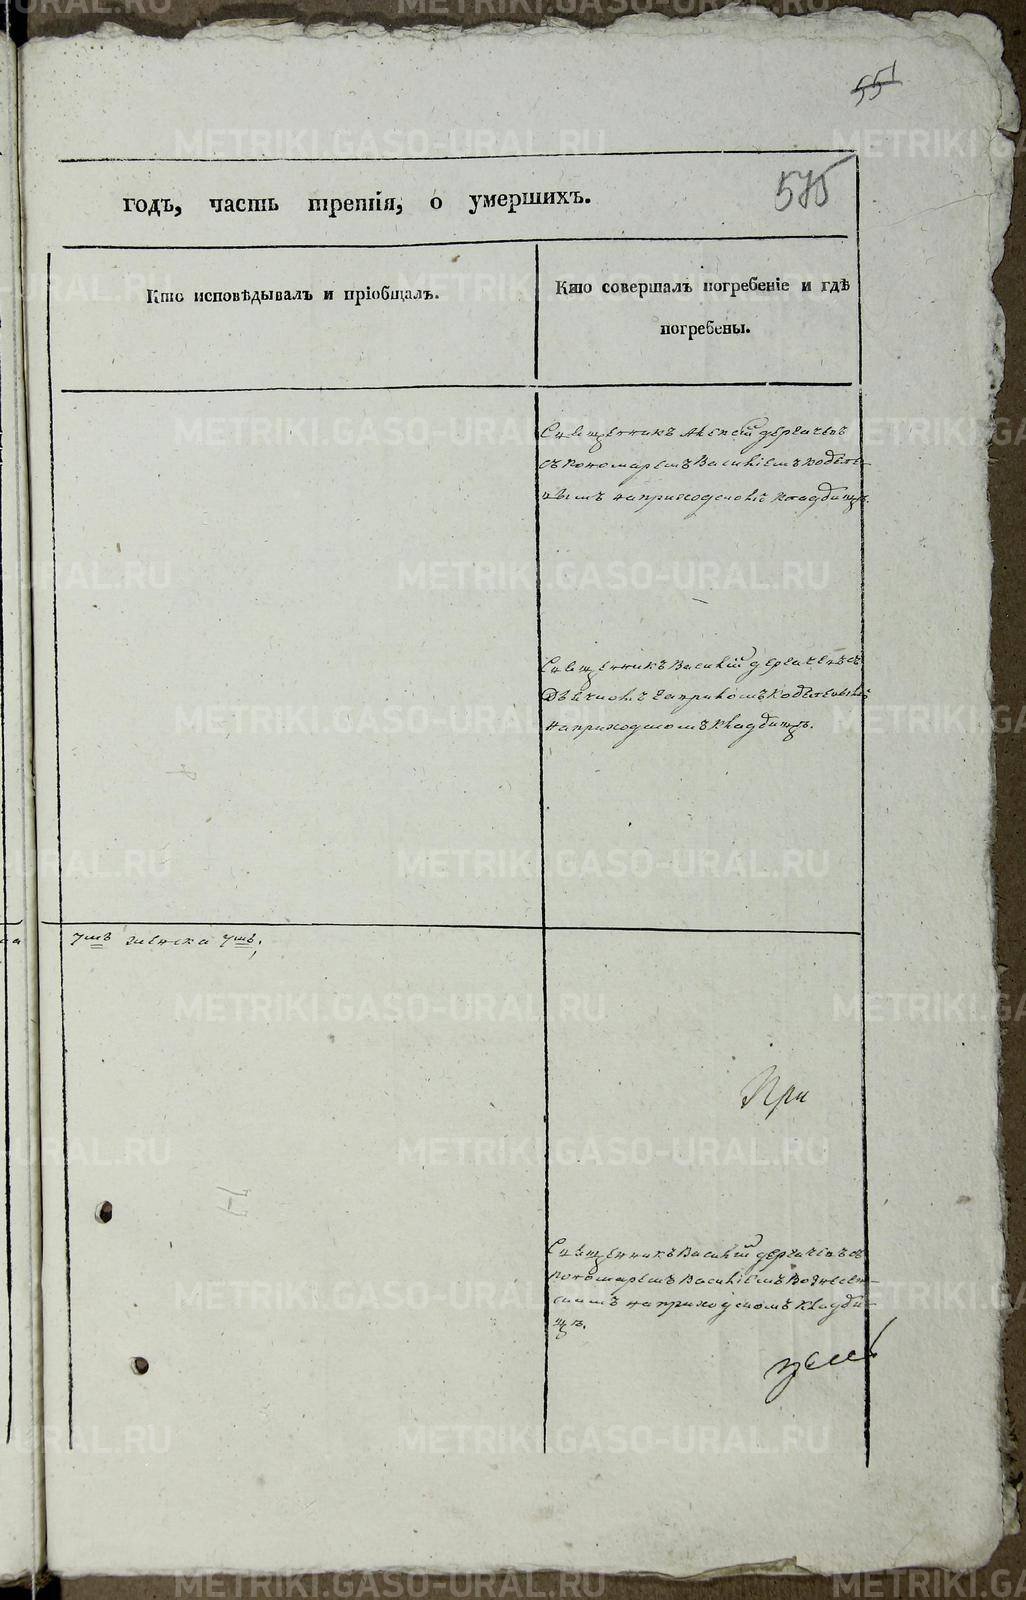 551
575
годъ, часть третія, о умершихъ.
Кто исповѣдывалъ и пріобщалъ.
Кто совершалъ погребеніе и гдѣ
погребены.
Священникъ Алексій Дергачевъ
съ пономаремъ Василіемъ
на приходское кладбищѣ.
Священникъ Василій Дергачевъ съ
на приходскомъ кладбищѣ.
При
Священникъ Василій Дергачевъ съ
пономаремъ Василіемъ Вознесен-
скимъ на приходскомъ кладби-
щѣ.
METRIKI.GASO-URAL.RU